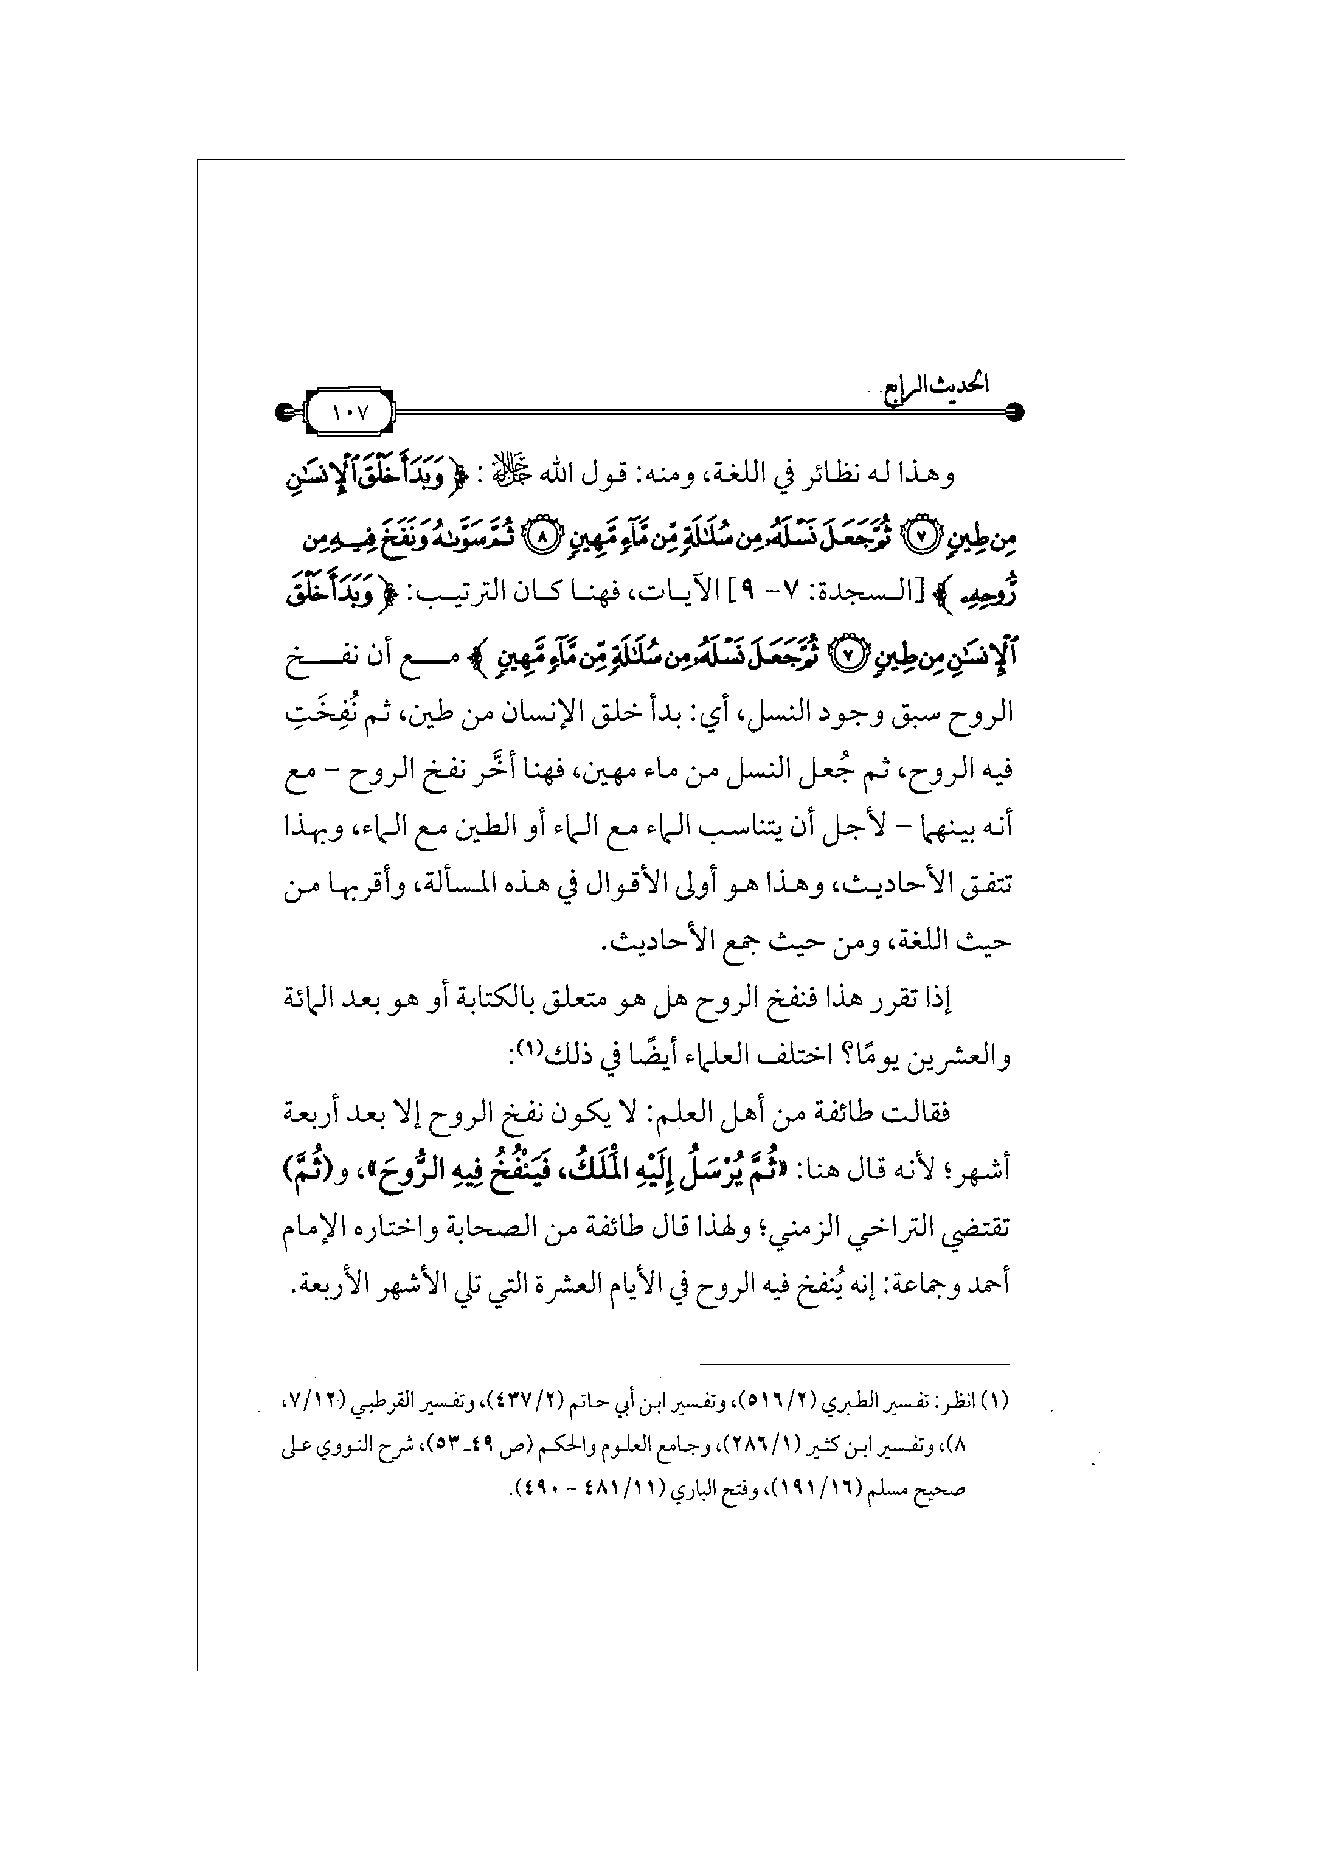 الحديث الرابع
١٠٧
وهذا له نظائر في اللغة، ومنه: قول الله ﷻ: ﴿وَبَدَأَ خَلْقَ ٱلْإِنسَٰنِ
مِن طِينٍ ۝٧ ثُمَّ جَعَلَ نَسْلَهُۥ مِن سُلَٰلَةٍ مِّن مَّآءٍ مَّهِينٍ ۝٨ ثُمَّ سَوَّىٰهُ وَنَفَخَ فِيهِ مِن
رُّوحِهِۦ﴾ [السجدة: ٧- ٩] الآيات، فهنا كان الترتيب: ﴿وَبَدَأَ خَلْقَ
ٱلْإِنسَٰنِ مِن طِينٍ ۝٧ ثُمَّ جَعَلَ نَسْلَهُۥ مِن سُلَٰلَةٍ مِّن مَّآءٍ مَّهِينٍ﴾ مع أن نفخ
الروح سبق وجود النسل، أي: بدأ خلق الإنسان من طين، ثم نُفِخَتِ
فيه الروح، ثم جُعل النسل من ماء مهين، فهنا أخَّر نفخ الروح – مع
أنه بينهما – لأجل أن يتناسب الماء مع الماء أو الطين مع الماء، وبهذا
تتفق الأحاديث، وهذا هو أولى الأقوال في هذه المسألة، وأقربها من
حيث اللغة، ومن حيث جمع الأحاديث.
إذا تقرر هذا فنفخ الروح هل هو متعلق بالكتابة أو هو بعد المائة
والعشرين يومًا؟ اختلف العلماء أيضًا في ذلك(١):
فقالت طائفة من أهل العلم: لا يكون نفخ الروح إلا بعد أربعة
أشهر؛ لأنه قال هنا: «ثُمَّ يُرْسَلُ إِلَيْهِ المَلَكُ، فَيَنْفُخُ فِيهِ الرُّوحَ»، و(ثُمَّ)
تقتضي التراخي الزمني؛ ولهذا قال طائفة من الصحابة واختاره الإمام
أحمد وجماعة: إنه يُنفخ فيه الروح في الأيام العشرة التي تلي الأشهر الأربعة.
(١) انظر: تفسير الطبري (٢/ ٥١٦)، وتفسير ابن أبي حاتم (٢/ ٤٣٧)، وتفسير القرطبي (١٢/ ٧،
٨)، وتفسير ابن كثير (١/ ٢٨٦)، وجامع العلوم والحكم (ص ٤٩ـ ٥٣)، شرح النووي على
صحيح مسلم (١٦/ ١٩١)، وفتح الباري (١١/ ٤٨١ – ٤٩٠).